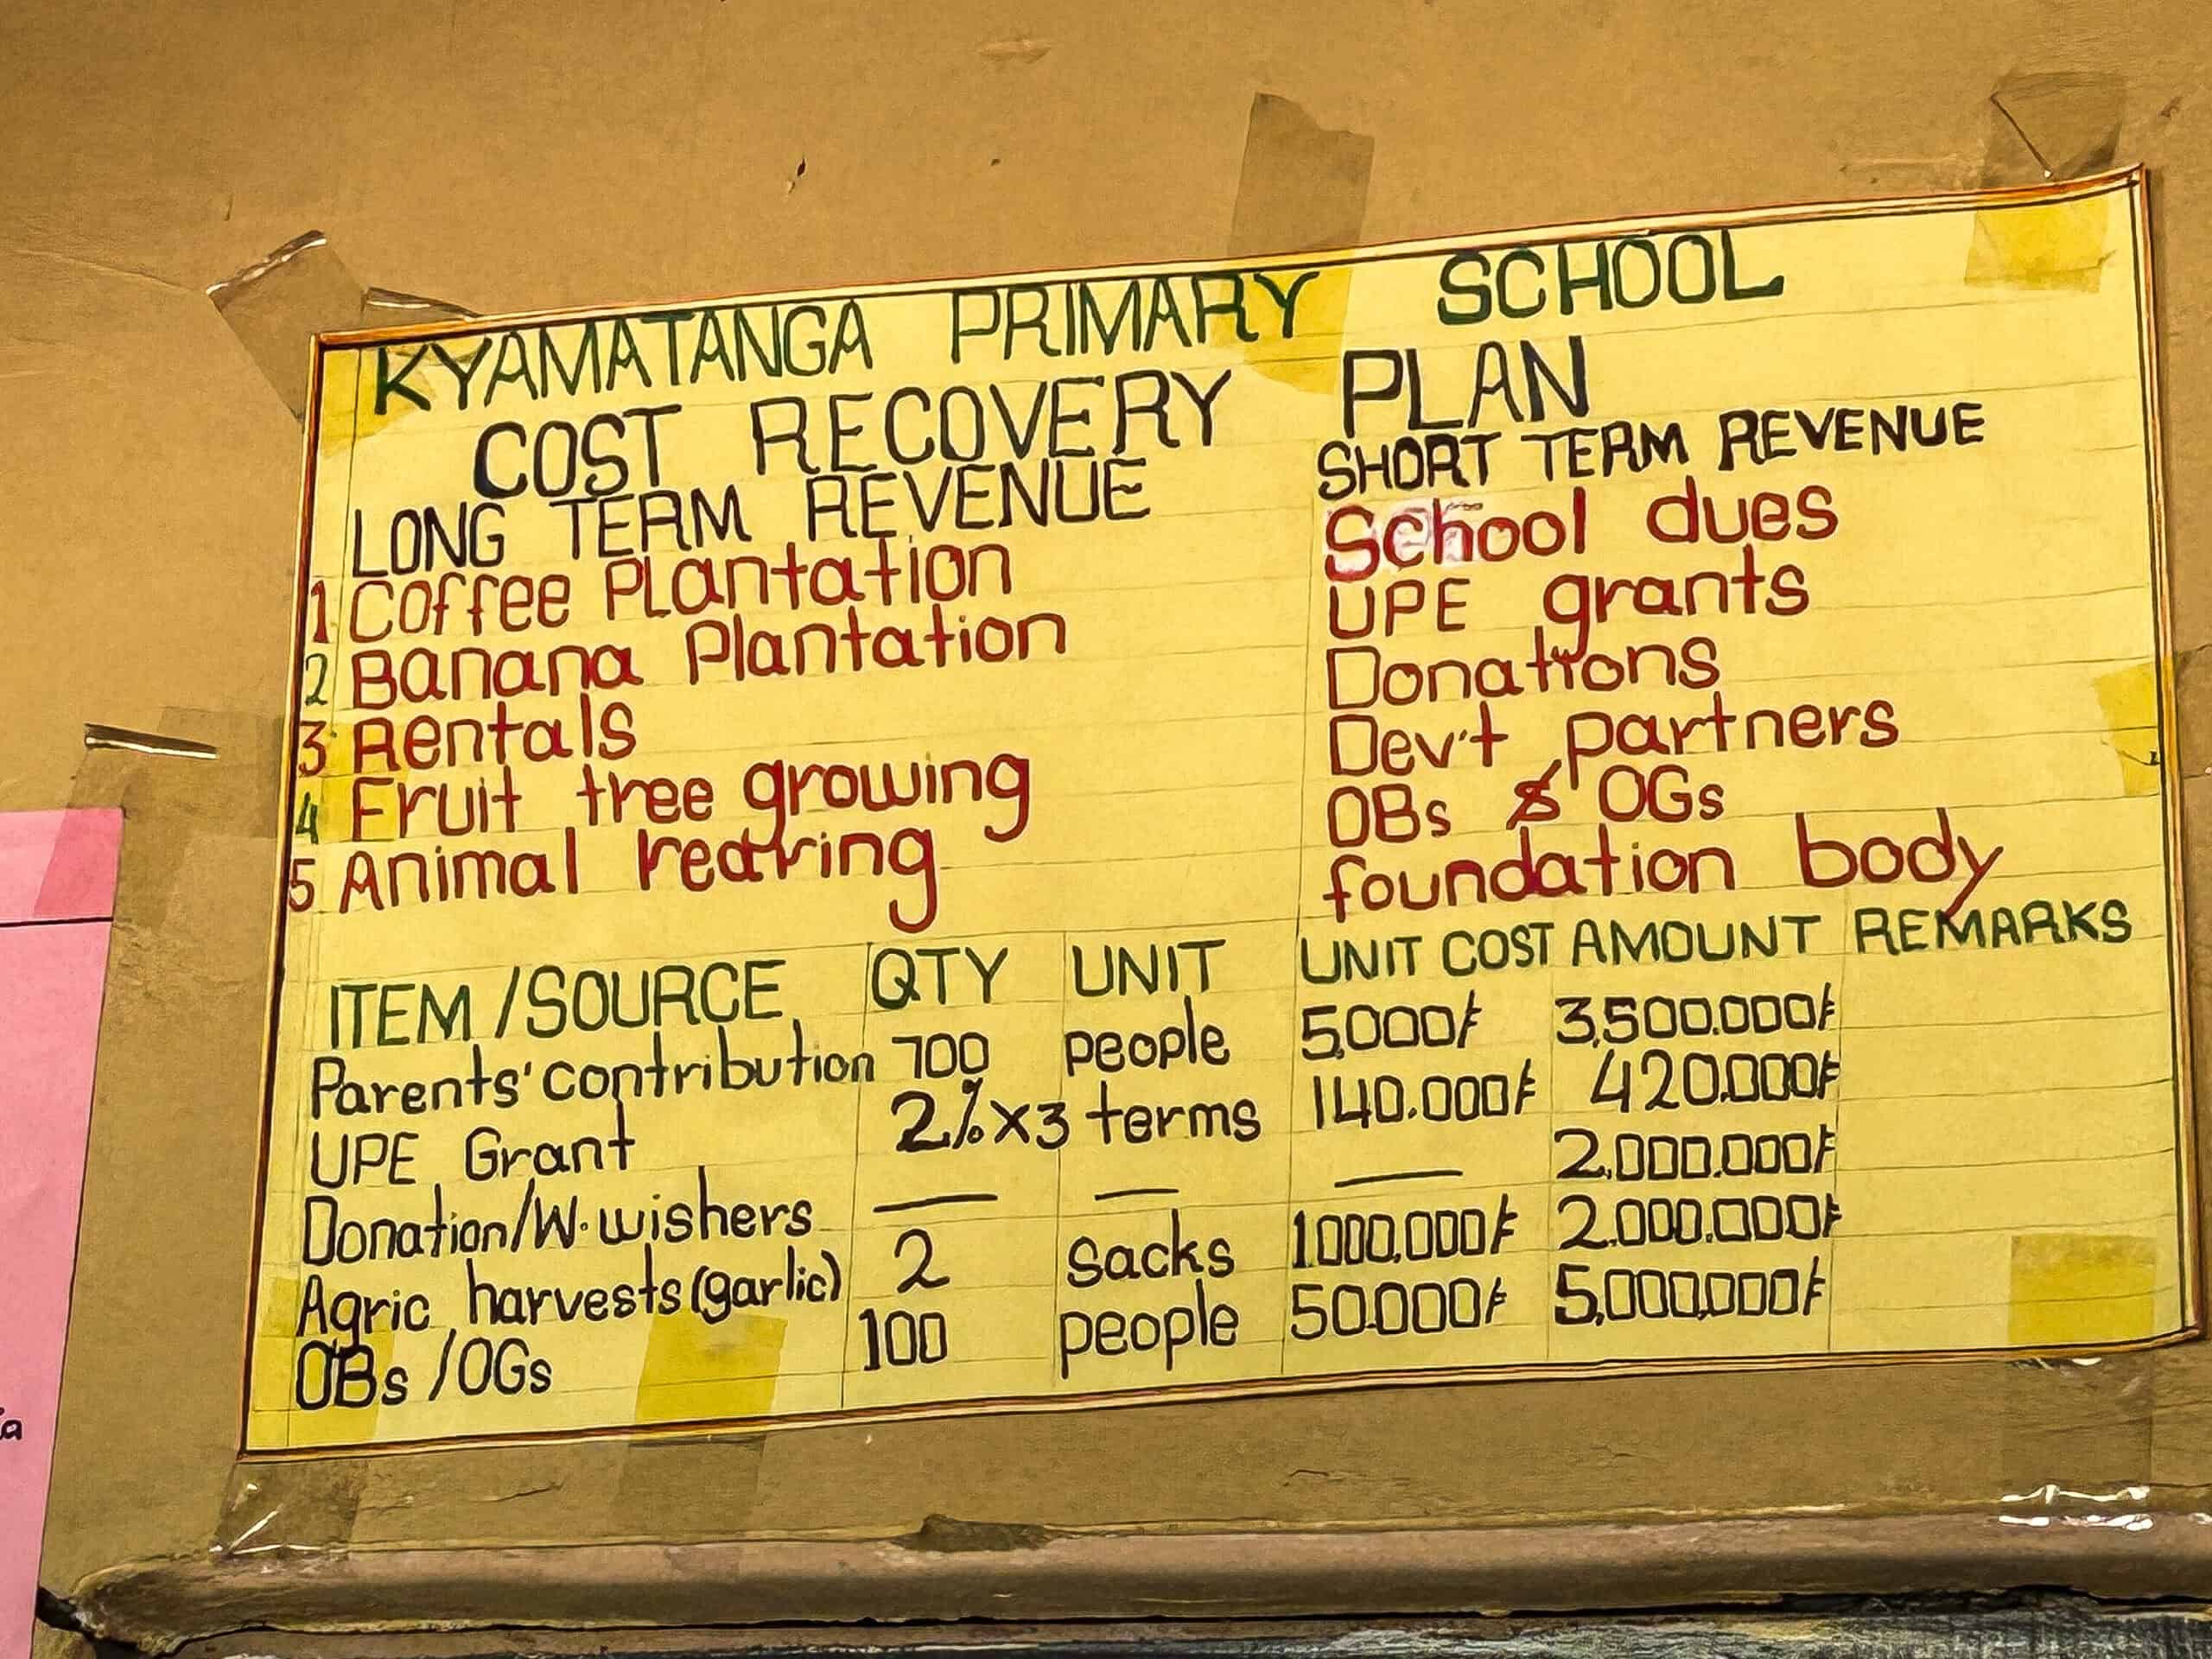 KYAMATANGA PRIMARY SCHOOL
COST RECOVERY PLAN
LONG TERM REVENUE
1 Coffee Plantation
2 Banana Plantation
3 Rentals
4 Fruit tree growing
5 Animal rearing
SHORT TERM REVENUE
School dues
UPE grants
Donations
Dev't partners
OBs & OGs
foundation body
ITEM/SOURCE QTY UNIT UNIT COST AMOUNT REMARKS
Parents' contribution 700 people 5,000/= 3,500.000/=
UPE Grant 2% x3 terms 140.000/= 420.000/=
Donation/W.wishers — — — 2,000.000/=
Agric harvests (garlic) 2 sacks 1000,000/= 2.000.000/=
OBs/OGs 100 people 50.000/= 5,000,000/=